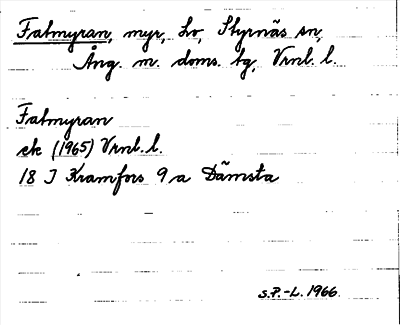 Fatmyran, myr, Lv, Styrnäs sn,
Ång. m. doms. tg, Vrnl. l.
Fatmyran
ek (1965) Vrnl. l.
18 J Kramfors 9 a Dämsta
S.P.-L. 1966.